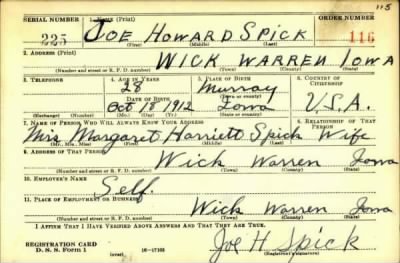 115
SERIAL NUMBER 1. NAME (Print) ORDER NUMBER
225 JOE HOWARD SPICK 116
(First) (Middle) (Last)
2. ADDRESS (Print)
WICK WARREN IOWA
(Number and street or R. F. D. number) (Town) (County) (State)
3. TELEPHONE 4. AGE IN YEARS 5. PLACE OF BIRTH 6. COUNTRY OF CITIZENSHIP
28 Murray
DATE OF BIRTH (Town or county)
Oct 18 1912 Iowa U.S.A.
(Exchange) (Number) (Mo.) (Day) (Yr.) (State or country)
7. NAME OF PERSON WHO WILL ALWAYS KNOW YOUR ADDRESS 8. RELATIONSHIP OF THAT PERSON
Mrs Margaret Harriett Spick Wife
(Mr., Mrs., Miss) (First) (Middle) (Last)
9. ADDRESS OF THAT PERSON
Wick Warren Iowa
(Number and street or R. F. D. number) (Town) (County) (State)
10. EMPLOYER'S NAME
Self.
11. PLACE OF EMPLOYMENT OR BUSINESS
Wick Warren Iowa
(Number and street or R. F. D. number) (Town) (County) (State)
I AFFIRM THAT I HAVE VERIFIED ABOVE ANSWERS AND THAT THEY ARE TRUE.
REGISTRATION CARD
D. S. S. Form 1 (over) 16-17105 Joe H. Spick